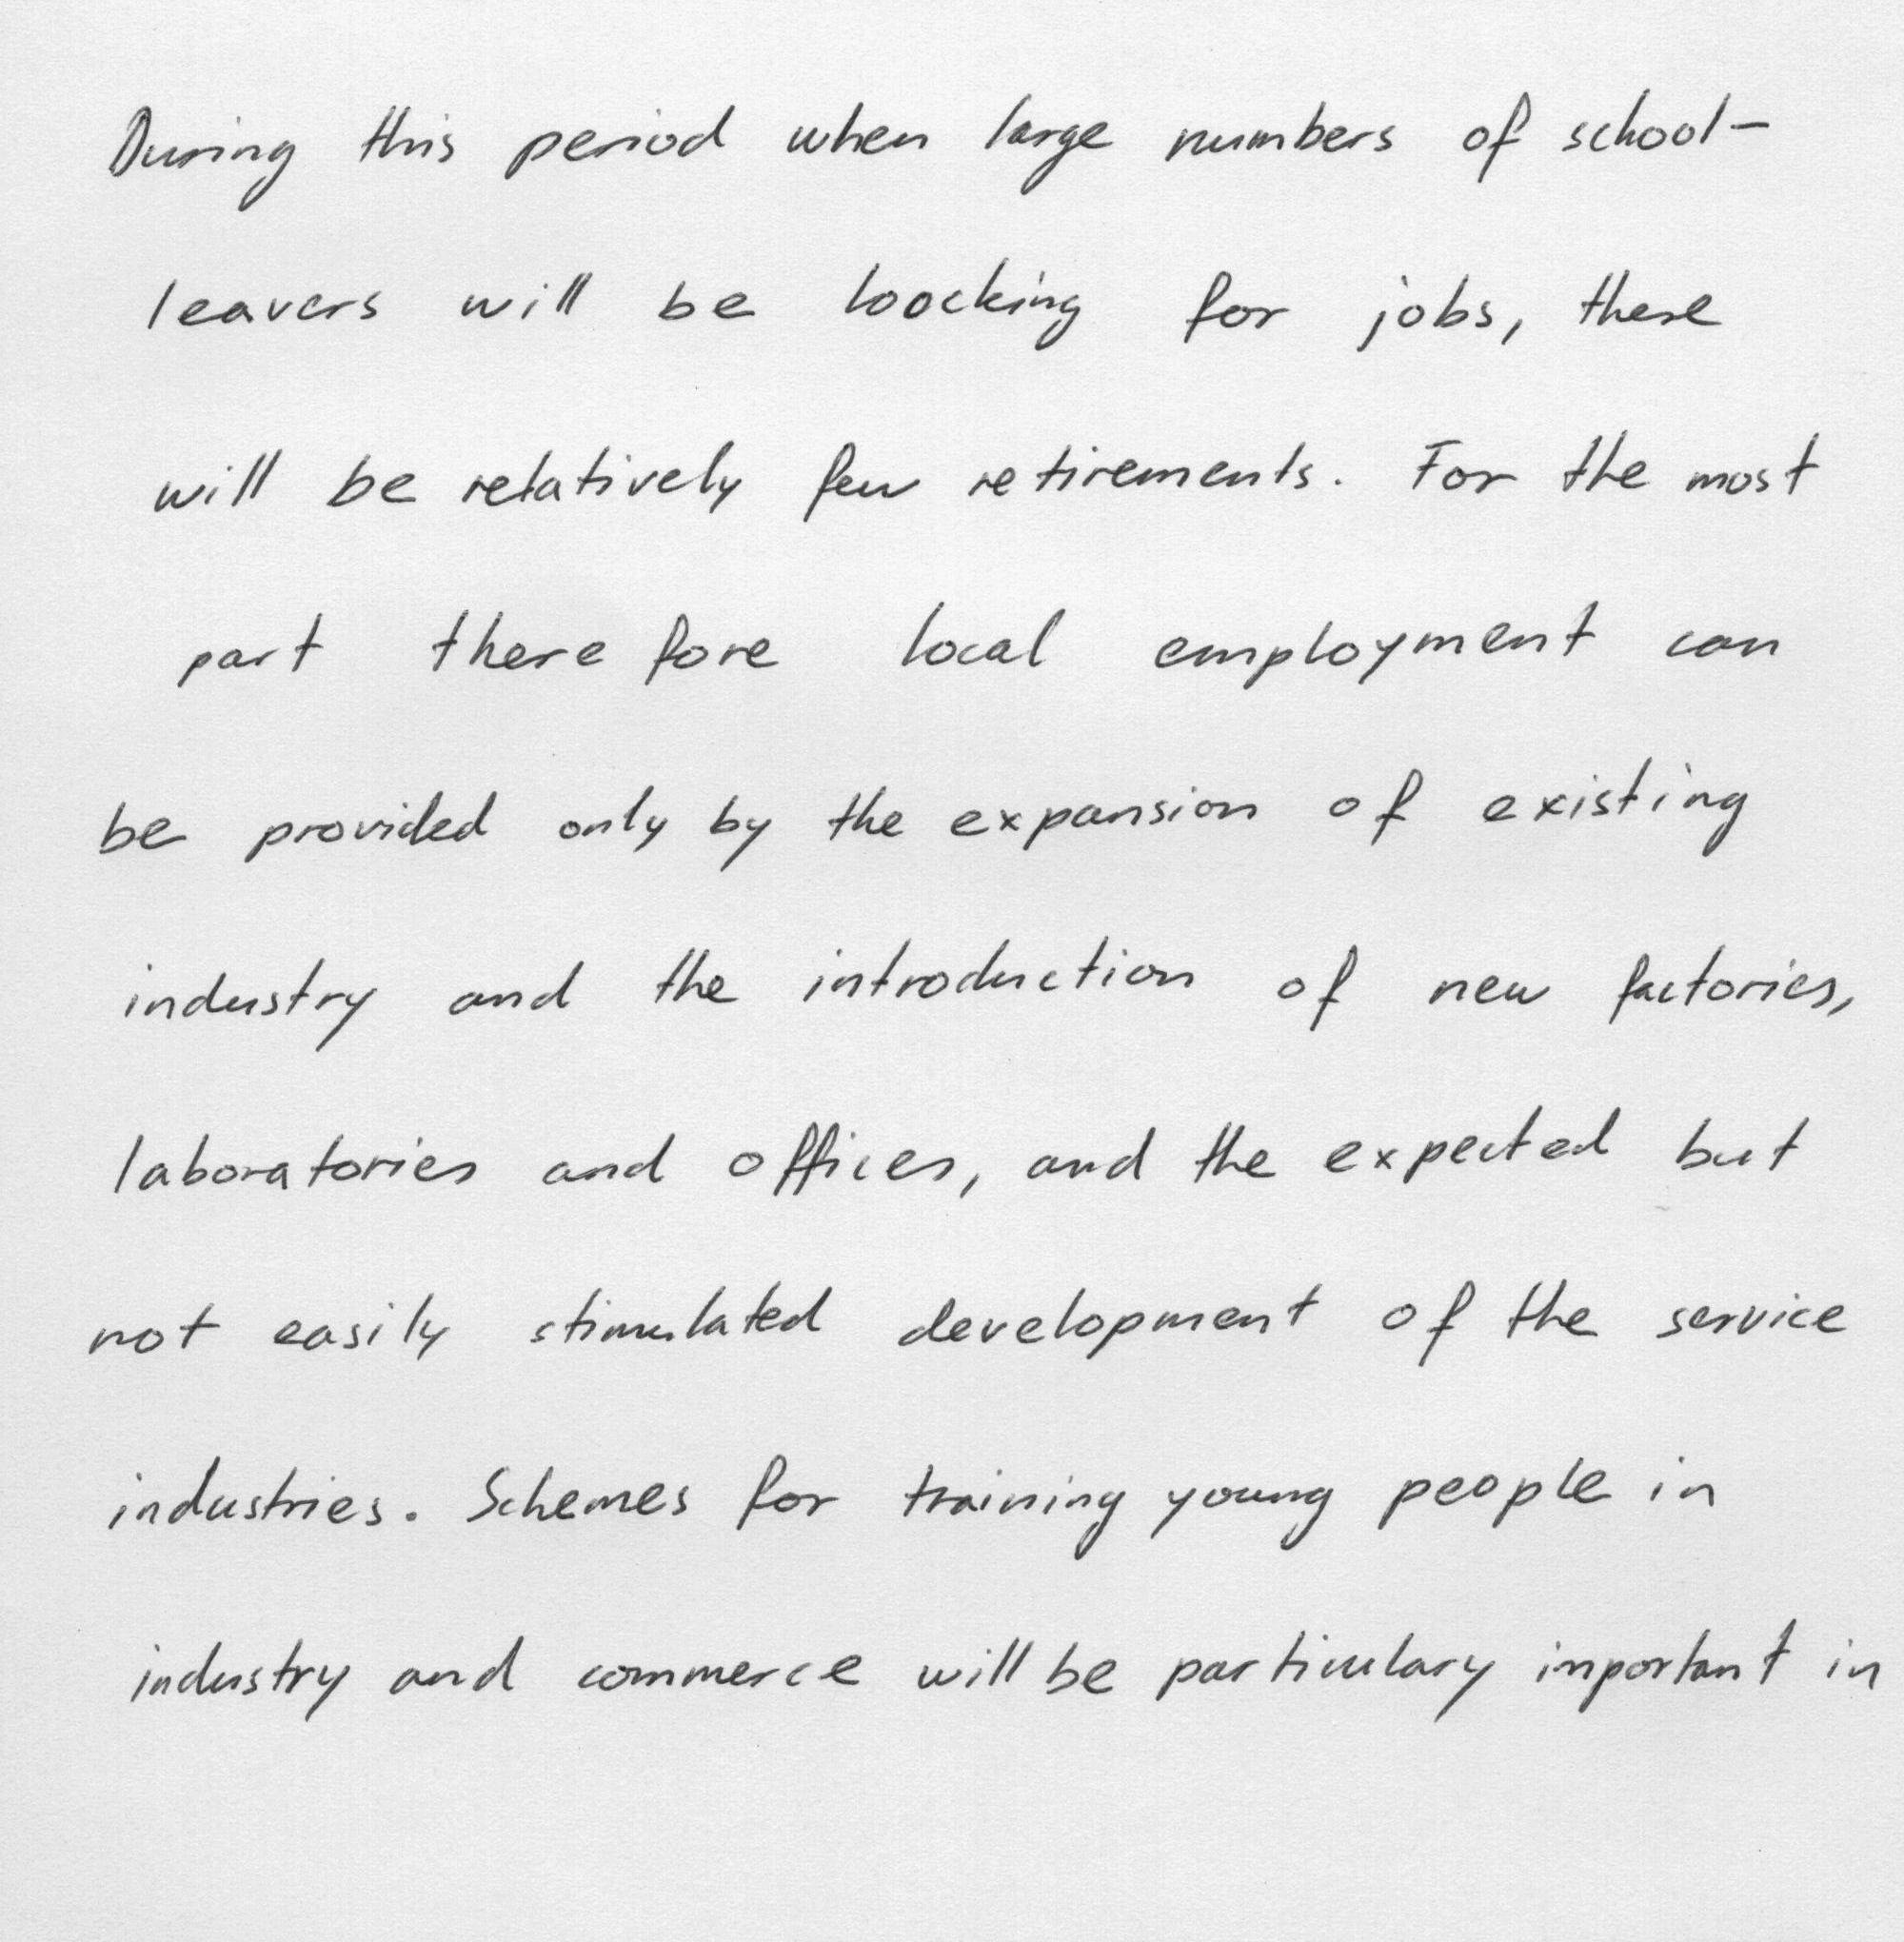 During this period when large numbers of school-
leavers will be loocking for jobs, there
will be relatively few retirements. For the most
part therefore local employment can
be provided only by the expansion of existing
industry and the introduction of new factories,
laboratories and offices, and the expected but
not easily stimulated development of the service
industries. Schemes for training young people in
industry and commerce will be particulary important in